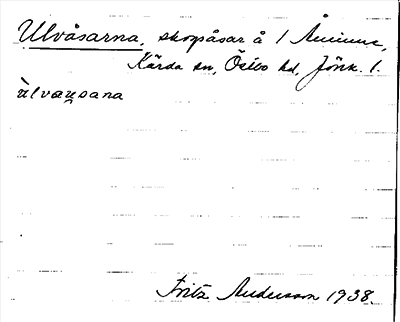 Ulvåsarna, skogsåsar å 1 Åminne,
Kärda sn, Östbo hd, Jönk. l.
ùlvaụsana
Fritz Andersson 1938.